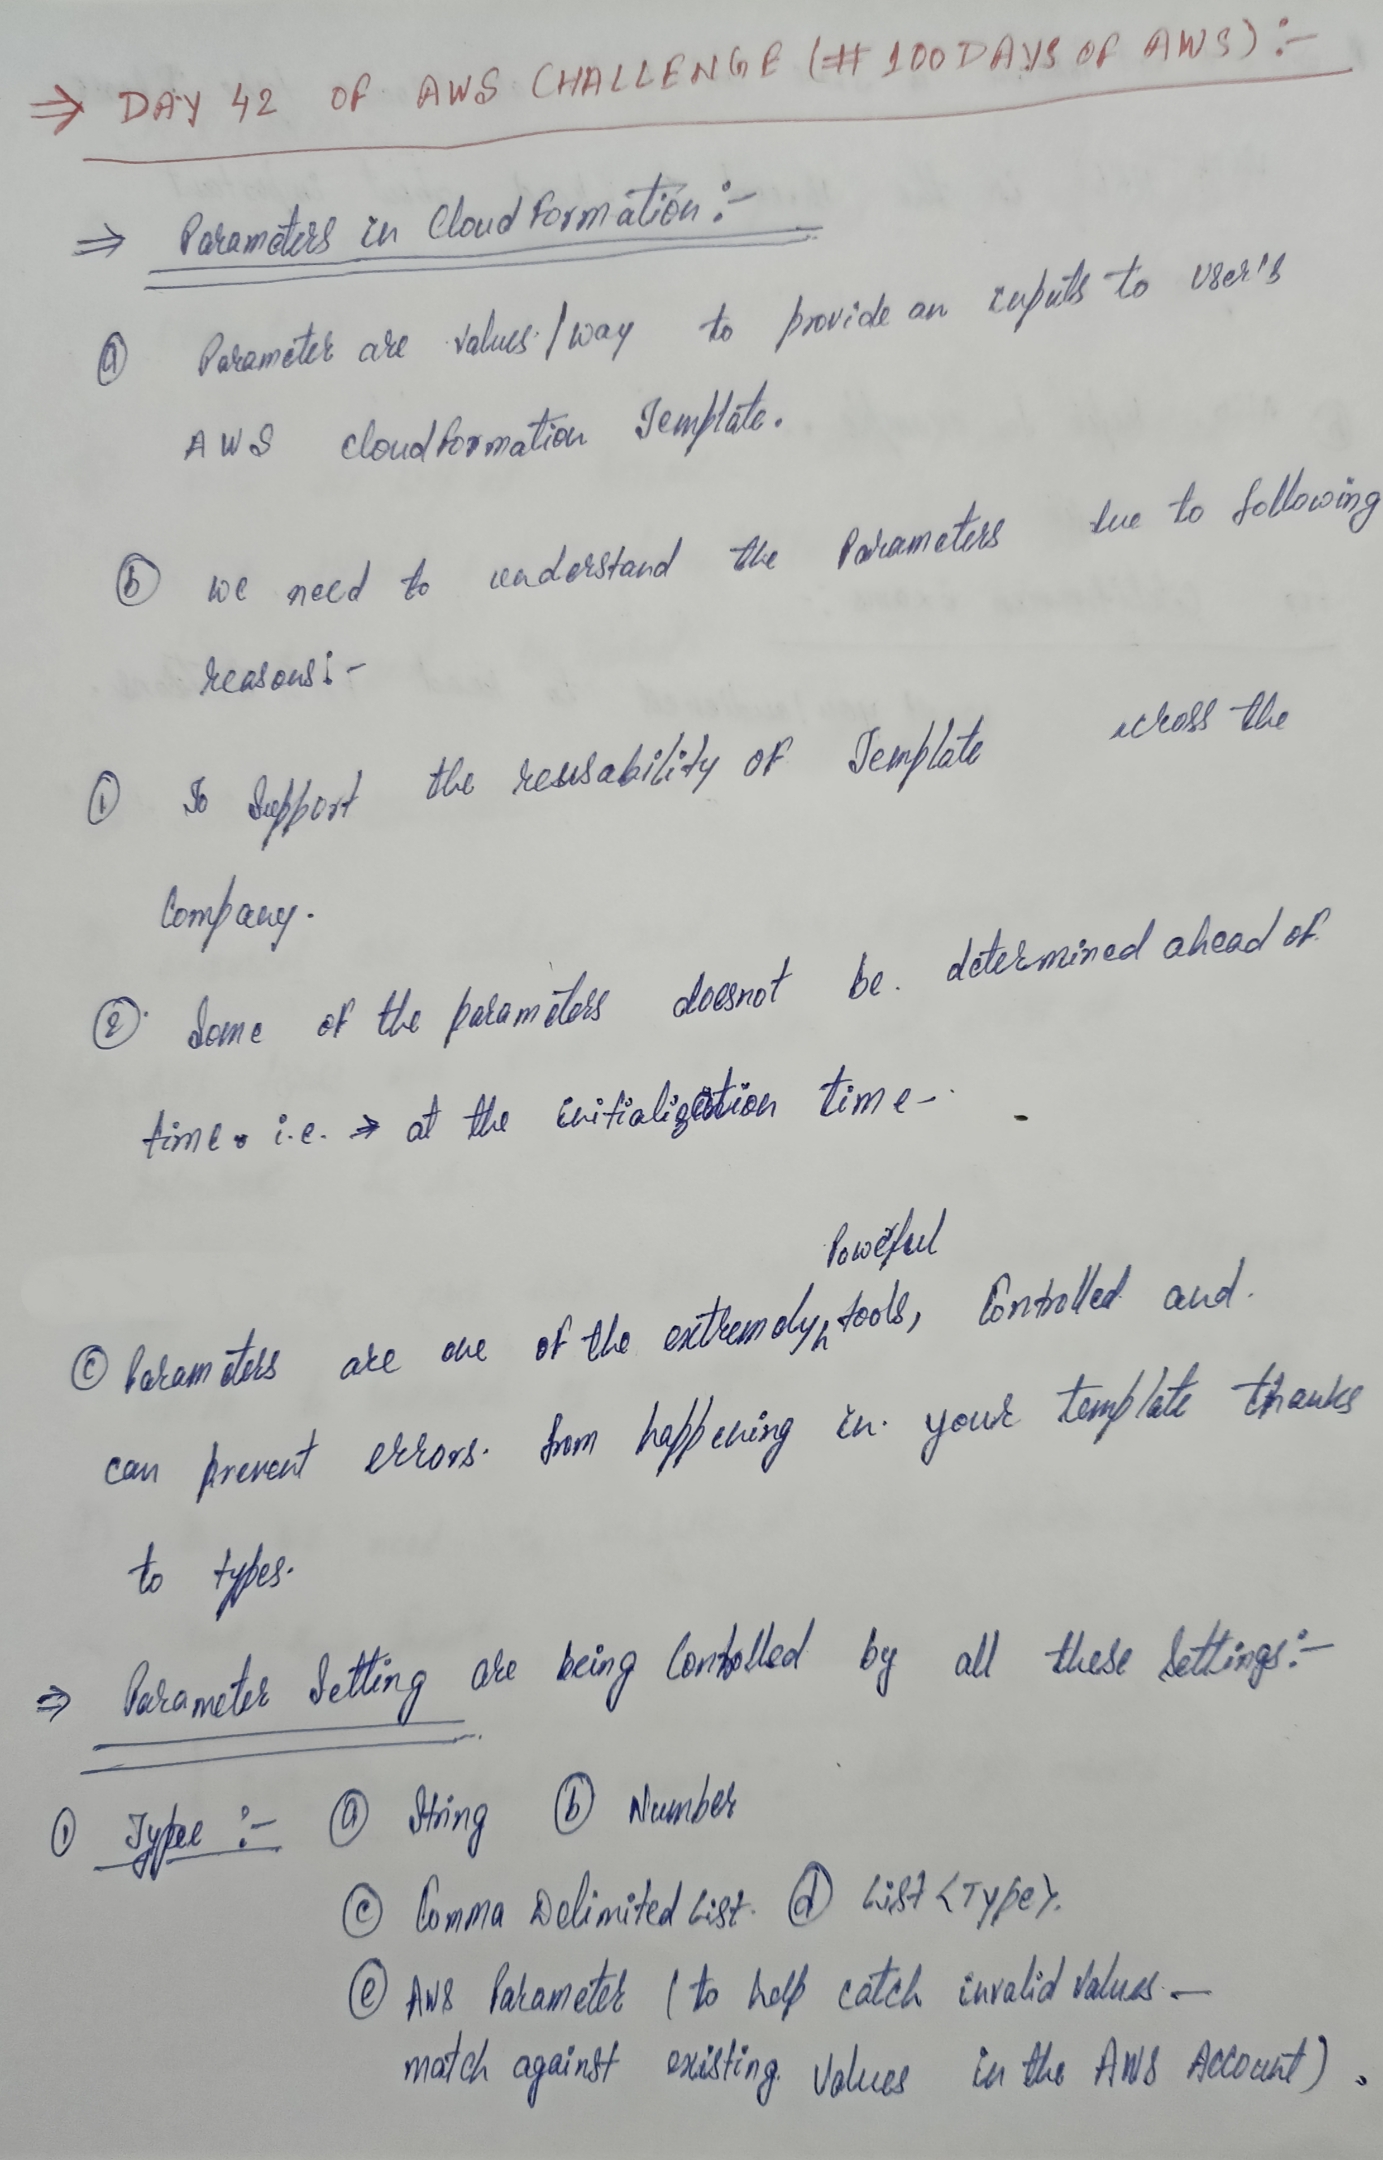 ⇒ DAY 42 OF AWS CHALLENGE (# 100 DAYS OF AWS) :-
⇒ Parameters in Cloud Formation :-
ⓐ Parameter are values / way to provide an inputs to user's
AWS cloud formation Template.
ⓑ we need to understand the Parameters due to following
reasons :-
① To Support the reusability of Template across the
Company.
② Some of the parameters doesnot be determined ahead of
time. i.e. ⇒ at the initialization time-
Powerful
ⓒ Parameters are one of the extremely, tools, Controlled and
can prevent errors. from happening in your template thanks
to types.
⇒ Parameter Setting are being Controlled by all these Settings :-
① Type :- ⓐ String ⓑ Number
ⓒ Comma Delimited List. ⓓ List <Type>.
ⓔ AWS Parameter ( to help catch invalid values -
match against existing values in the AWS Account ) .